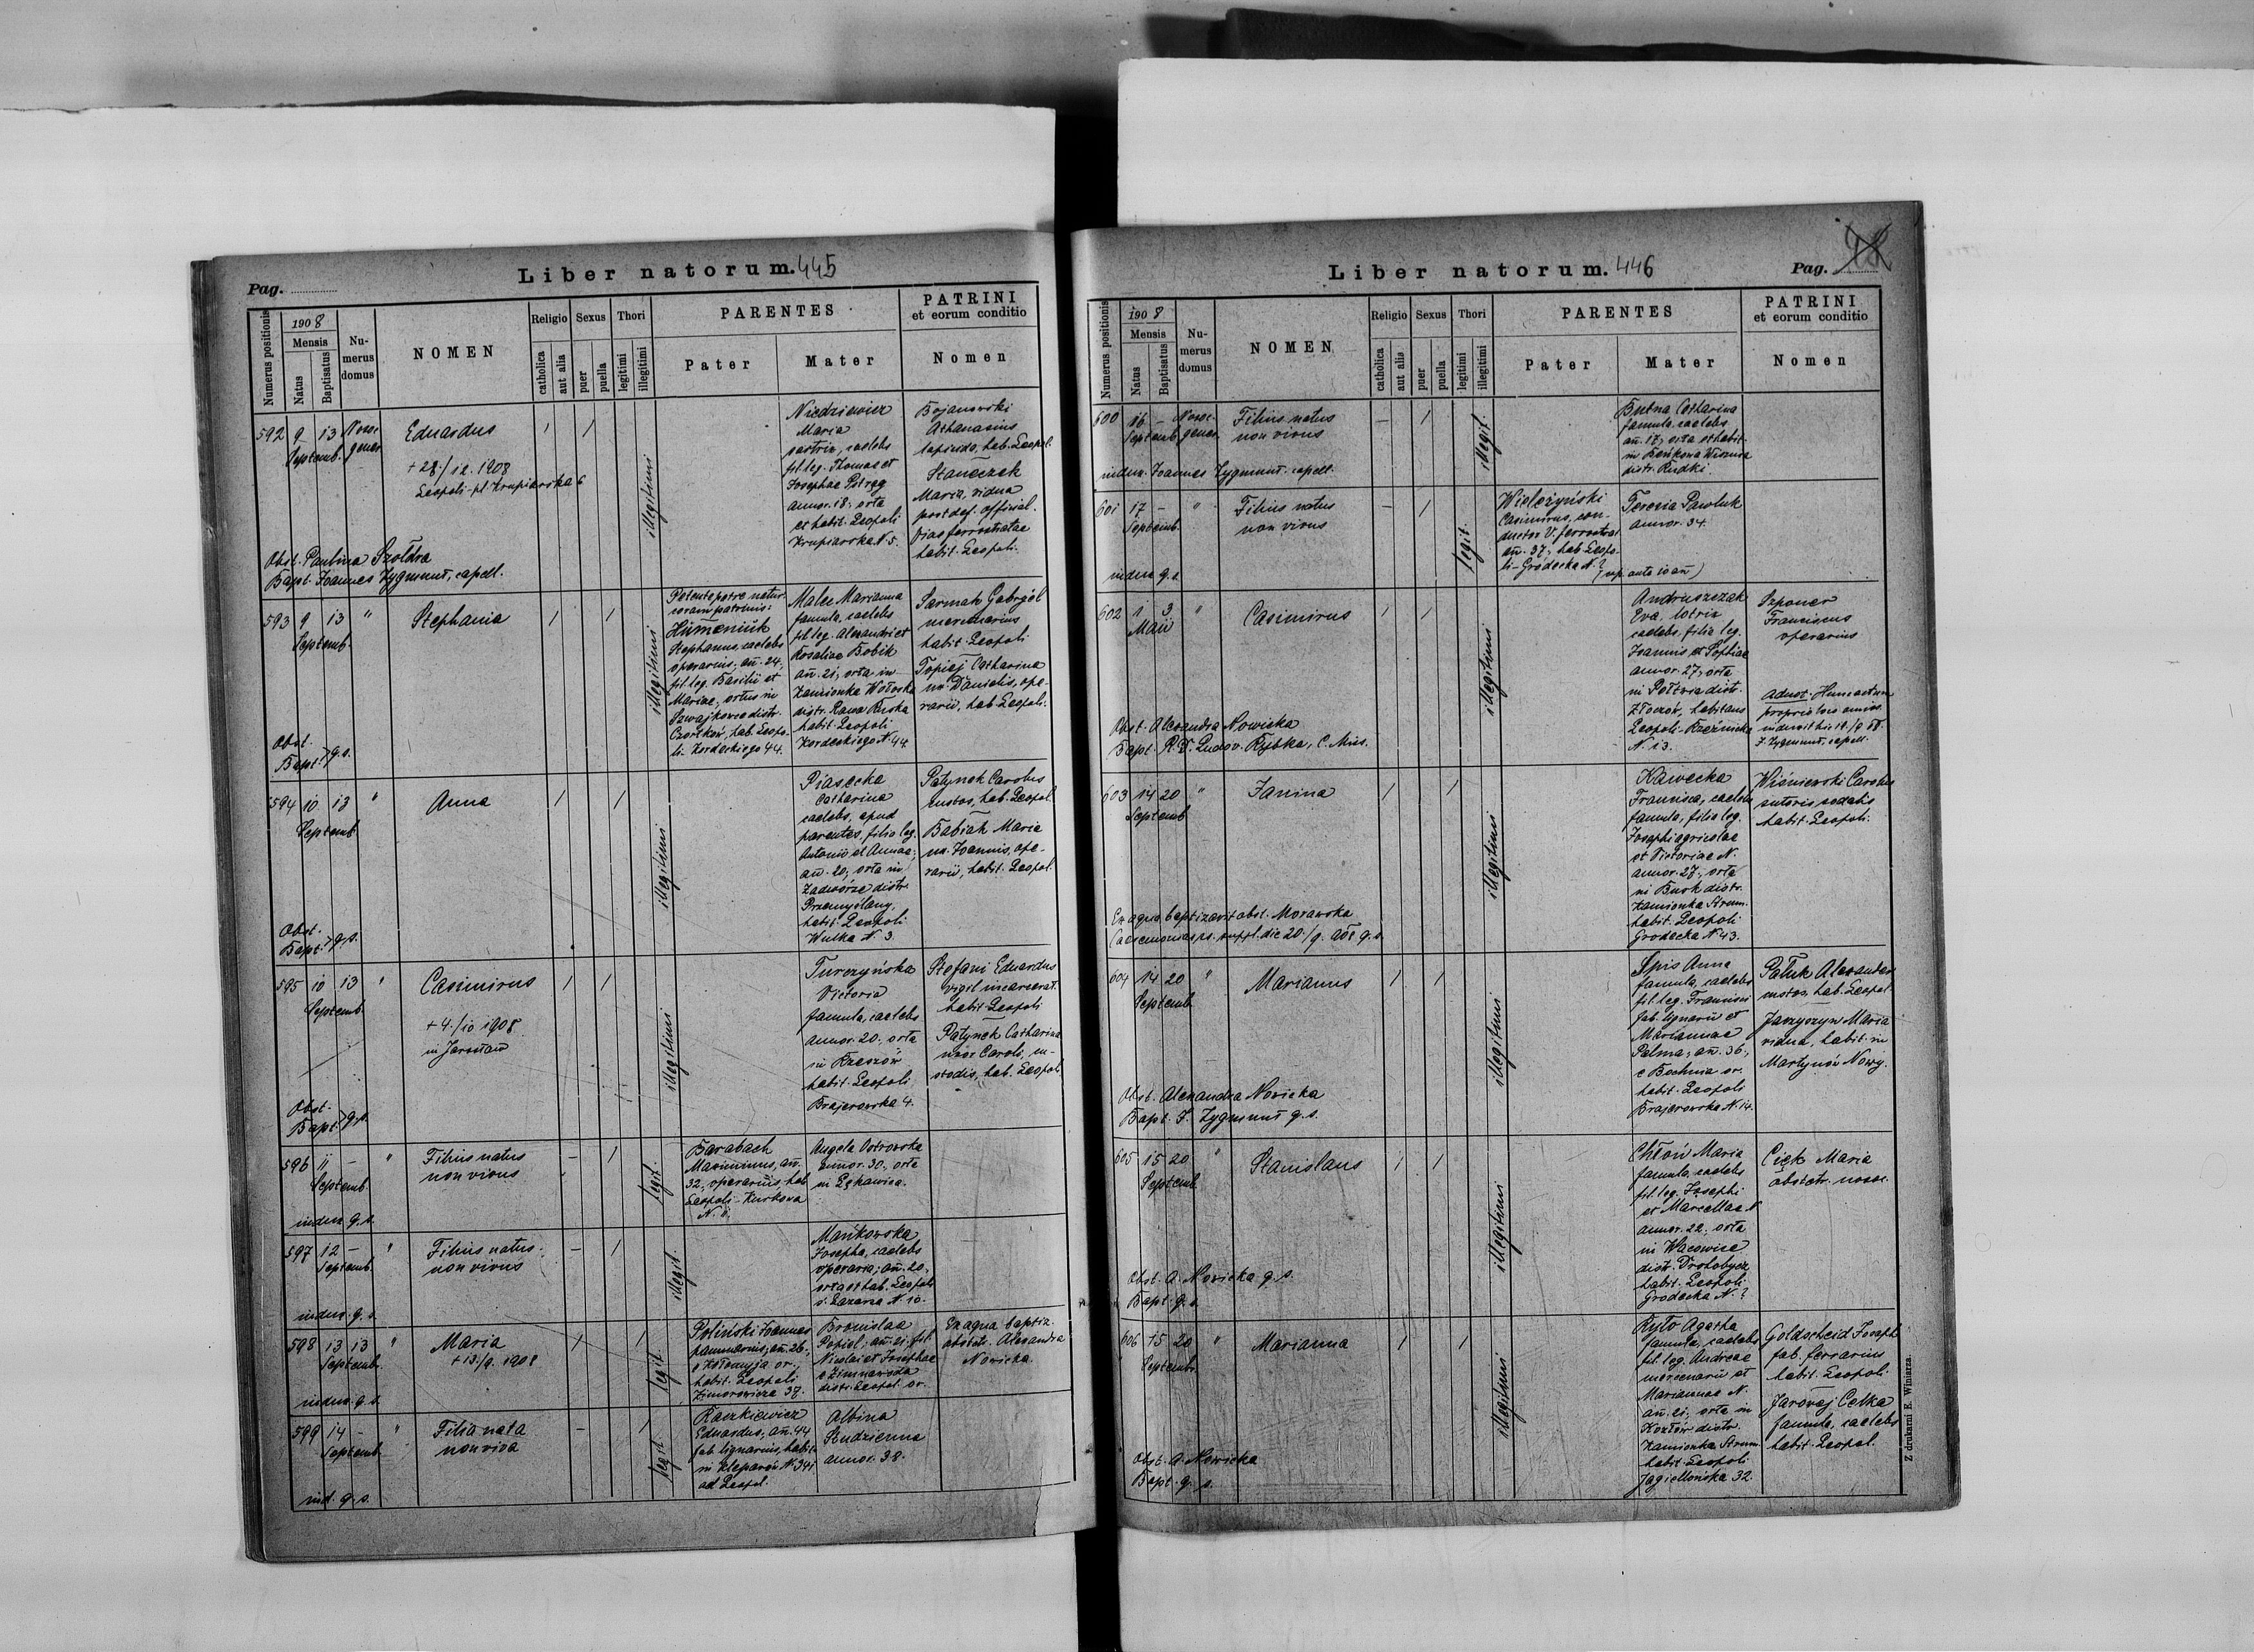 Pag.
Liber natorum. 445
Numerus positionis
1908
Mensis
Natus
Baptisatus
Numerus domus
NOMEN
Religio
catholica
aut alia
Sexus
puer
puella
Thori
legitimi
illegitimi
PARENTES
Pater
Mater
PATRINI
et eorum conditio
Nomen
592 9 13
Septemb.
Eduardus
+ 28/12. 1908
Leopoli
illegitimi
Niedziewicz
Maria
caelebs
fil. leg. Thomae et
Josephae
annor. 18, orta
et habit. Leopoli
Krupiarska N. 5.
Bojanowski
Athanasius
hab. Leopol.
Stańczak
Maria, vidua
post def. official.
viae ferrostratae
habit. Leopoli.
Obst. Paulina Szołdra
Bapt. Joannes Zygmunt, capell.
593 9 13 "
Septemb.
Stephania
illegitimi
coram patrinis:
Humeniuk
Stephanus, caelebs
operarius, an. 24,
fil. leg. Basilii et
Mariae, ortus in
Szwajkowce distr.
Czortków, hab. Leopo-
li. Kordeckiego 44.
Malec Marianna
famula, caelebs
fil. leg. Alexandri et
Rosaliae Bobik
an. 21, orta in
Kamionka Wołoska
distr. Rawa Ruska
habit. Leopoli
Kordeckiego N. 44.
Sarmak Gabryel
mercenarius
habit. Leopoli
Topiej Catharina
ux. Danielis, ope-
rarii, hab. Leopoli.
Obst.
Bapt. > q. s.
594 10 13 "
Septemb.
Anna
illegitimi
Piasecka
Catharina
caelebs, apud
parentes, filia leg.
Antonii et Annae;
an. 20, orta in
Zadwórze distr.
Przemyślany,
habit. Leopoli
Wulka N. 3.
Patynek Carolus
custos, hab. Leopol.
Babiak Maria
ux. Joannis, ope-
rarii, habit. Leopol.
Obst.
Bapt. > q. s.
595 10 13 "
Septemb.
Casimirus
+ 4/10 1908
in Jarosław
illegitimi
Turczyńska
Victoria
famula, caelebs
annor. 20, orta
in Rzeszów
habit. Leopoli
Brajerowska 4.
Stefani Eduardus
vigil incarcerat.
habit. Leopoli
Patynek Catharina
uxor Caroli, cu-
stodis, hab. Leopol.
Obst.
Bapt. > q. s.
596 11 - "
Septemb.
Filius natus
non vivus
legit.
Barabach
Maximinus, an.
32, operarius, hab.
Leopoli - Kurkowa
Angela Ostrowska
annor. 30, orta
in Łękawica.
indux. q. s.
597 12 - "
Septemb.
Filius natus
non vivus
illegit.
Mańkowska
Josepha, caelebs
operaria; an. 20,
orta et hab. Leopoli
s. Lazarza N. 10.
indux. q. s.
598 13 13 "
Septemb.
Maria
+ 13/9. 1908
legit.
Poliński Joannes
an. 26,
habit. Leopoli
Zimorowicza 37.
Bronislaa
Popiol; an. 21, fil.
Nicolai et Josephae
e Zimnawoda
distr. Leopol. or.
Ex aqua baptiz.
obstetr. Alexandra
Nowicka.
indux. q. s.
599 14 - "
Septemb.
Filia nata
non viva
legit.
Raszkiewicz
Eduardus, an. 44
fab. lignarius, habit.
in Kleparów N. 341
ad Leopol.
Albina
Studzienna
annor. 38.
ind. q. s.
Liber natorum. 446
Pag.
Numerus positionis
1908
Mensis
Natus
Baptisatus
Numerus domus
NOMEN
Religio
catholica
aut alia
Sexus
puer
puella
Thori
legitimi
illegitimi
PARENTES
Pater
Mater
PATRINI
et eorum conditio
Nomen
600 16 -
Septemb.
Filius natus
non vivus
illegit.
Butna Catharina
famula, caelebs
an. 17, orta et habit.
in Beńkowa Wisznia
distr. Rudki.
indux. Joannes Zygmunt, capell.
601 17 - "
Septemb.
Filius natus
non vivus
legit.
Wielczyński
Casimirus, con-
ductor V. ferrostrat.
an. 37, hab. Leopo-
li - Grodecka N. ?
Teresia Pawluk
annor. 34.
(nup. ante 10 an.)
indux. q. s.
602 1 3 "
Maii
Casimirus
illegitimi
Andruszczak
Eva, lotrix
caelebs, filia leg.
Joannis et Sophiae
annor. 27, orta
in Połtwa distr.
Złoczów, habitans
Leopoli - Rzeźnicka
N. 13.
Szponer
Franciscus
operarius
Adnot. Hunc actum
proprio loco omiss.
induxit hic
J. Zygmunt, capell.
Obst. Alexandra Nowicka
Bapt. R. D. Ludov. Rybka, C. Miss.
603 14 20 "
Septemb.
Janina
illegitimi
Kawecka
Francisca, caelebs
famula, filia leg.
Josephi agricolae
et Victoriae N.
annor. 27, orta
in Busk distr.
Kamionka Strum.
habit. Leopoli
Grodecka N. 43.
Wiśniewski Carolus
sutoris sodalis
habit. Leopoli.
Ex aqua baptizavit obst. Morawska
Caeremonias ps. suppl. die 20/9. 908 q. s.
604 14 20 "
Septemb.
Marianus
illegitimi
Spis Anna
famula, caelebs
fil. leg. Francisci
fab. lignarii et
Mariannae
Palma, an. 36,
e Bochnia or.
habit. Leopoli
Brajerowska N. 14.
Pałuk Alexander
custos, hab. Leopol.
Jaszyszyn Maria
vidua, habit. in
Martynów Nowy.
Obst. Alexandra Nowicka
Bapt. J. Zygmunt q. s.
605 15 20 "
Septemb.
Stanislaus
illegitimi
Chłoń Maria
famula, caelebs
fil. leg. Josephi
et Marcellae N.
annor. 22, orta
in Wacowice
distr. Drohobycz
habit. Leopoli
Grodecka N. ?
Ciek Maria
obstetr.
Obst. A. Nowicka q. s.
Bapt. q. s.
606 15 20 "
Septemb.
Marianna
illegitimi
Ryto Agatha
famula, caelebs
fil. leg. Andreae
mercenarii et
Mariannae N.
an. 21, orta in
Kozłów distr.
Kamionka Strum.
habit. Leopoli
Jagiellońska 32.
Goldscheid Joseph
fab. ferrarius
habit. Leopoli.
Jarowej Celka
famula, caelebs
habit. Leopol.
Obst. A. Nowicka
Bapt. q. s.
Z drukarni E. Winiarza.